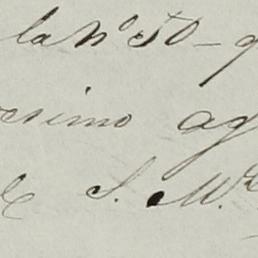 la Nº 50 - q
esimo ag
S. M.